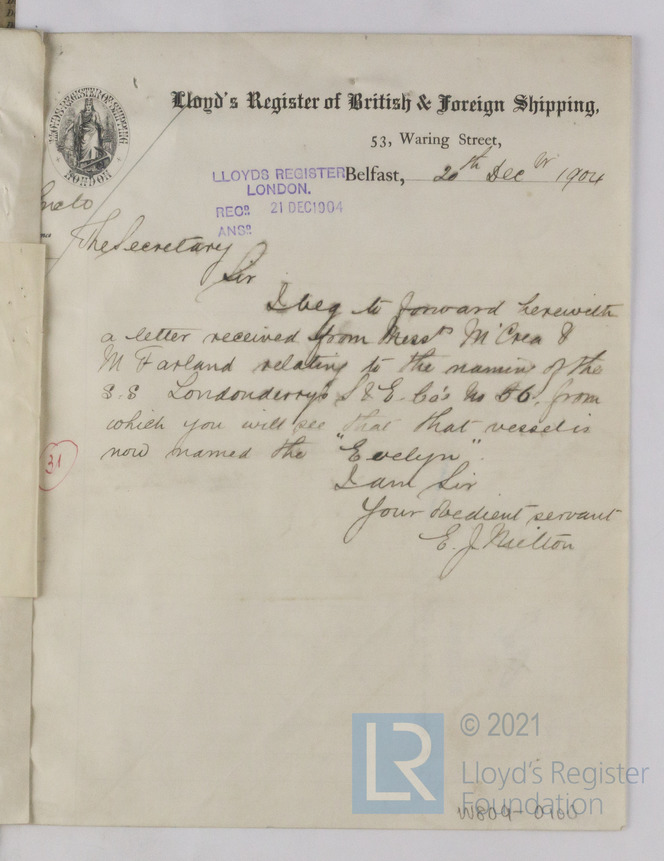 LLOYD'S REGISTER OF SHIPPING
LONDON
Lloyd's Register of British & Foreign Shipping,
53, Waring Street,
Belfast, 20th Decbr 1904
LLOYDS REGISTER
LONDON.
RECD. 21 DEC 1904
ANSD.
The Secretary
Sir
I beg to forward herewith
a letter received from Messrs McCrea &
McFarland relating to the naming of the
S.S Londonderry's S & E. Co's No 56, from
which you will see that that vessel is
now named the "Evelyn".
31
I am Sir
Your obedient servant
E. J.
LR
© 2021
Lloyd's Register
Foundation
W809-0100